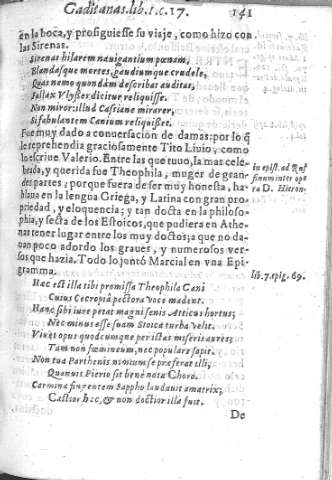 Gaditanas.lib.1.c.17. 141
en la boca, y prosiguiesse su viaje, como hizo con
las Sirenas.
Sirenas hilarem nauigantium pœnam,
Blandasque mortes, gaudiumque crudele,
Quas nemo quondam deserebat auditas,
Fallax Vlysses dicitur reliquisse.
Non miror: illud Cassiane mirarer,
Si fabulantem Canium reliquisset.
Fue muy dado a conuersacion de damas: por lo q̃
le reprehendia graciosamente Tito Liuio, como
lo escriue Valerio. Entre las que tuuo, la mas cele-
brada, y querida fue Theophila, muger de gran-
des partes, porque fuera de ser muy honesta, ha-
blaua en la lengua Griega, y Latina con gran pro-
priedad, y eloquencia; y tan docta en la philoso-
phia, y secta de los Estoicos, que pudiera en Athe-
nas tener lugar entre los muy doctos; a que no da-
uan poco adordo los graues, y numerosos ver-
sos que hazia. Todo lo juntó Marcial en vna Epi-
gramma.
in epist. ad Ruf
finum inter ope
ra D. Hieron.
lib. 7. epig. 69.
Hæc est illa tibi promissa Theophila Cani
Cuius Cecropia pectora voce madent.
Hanc sibi iure petat magni senis Atticus hortus;
Nec minus esse suam Stoica turba velit.
Viuet opus quodcumque per istas miseris aures;
Tam non fœmineum, nec populare sapit.
Non tua Parthenis nimium se præferat illi,
Quamuis Pierio sit bene nota Choro.
Carmina fingentem Sappho laudauit amatrix;
Castior hæc, & non doctior illa fuit.
De